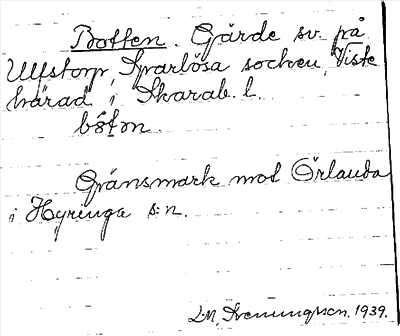 Botten. Gärde sv. på
Ulfstorp, Sparlösa socken, Viste
härad i Skarab. l.
båtǝn
Gränsmark mot Örlanda
i Hyringa s:n.
1939.